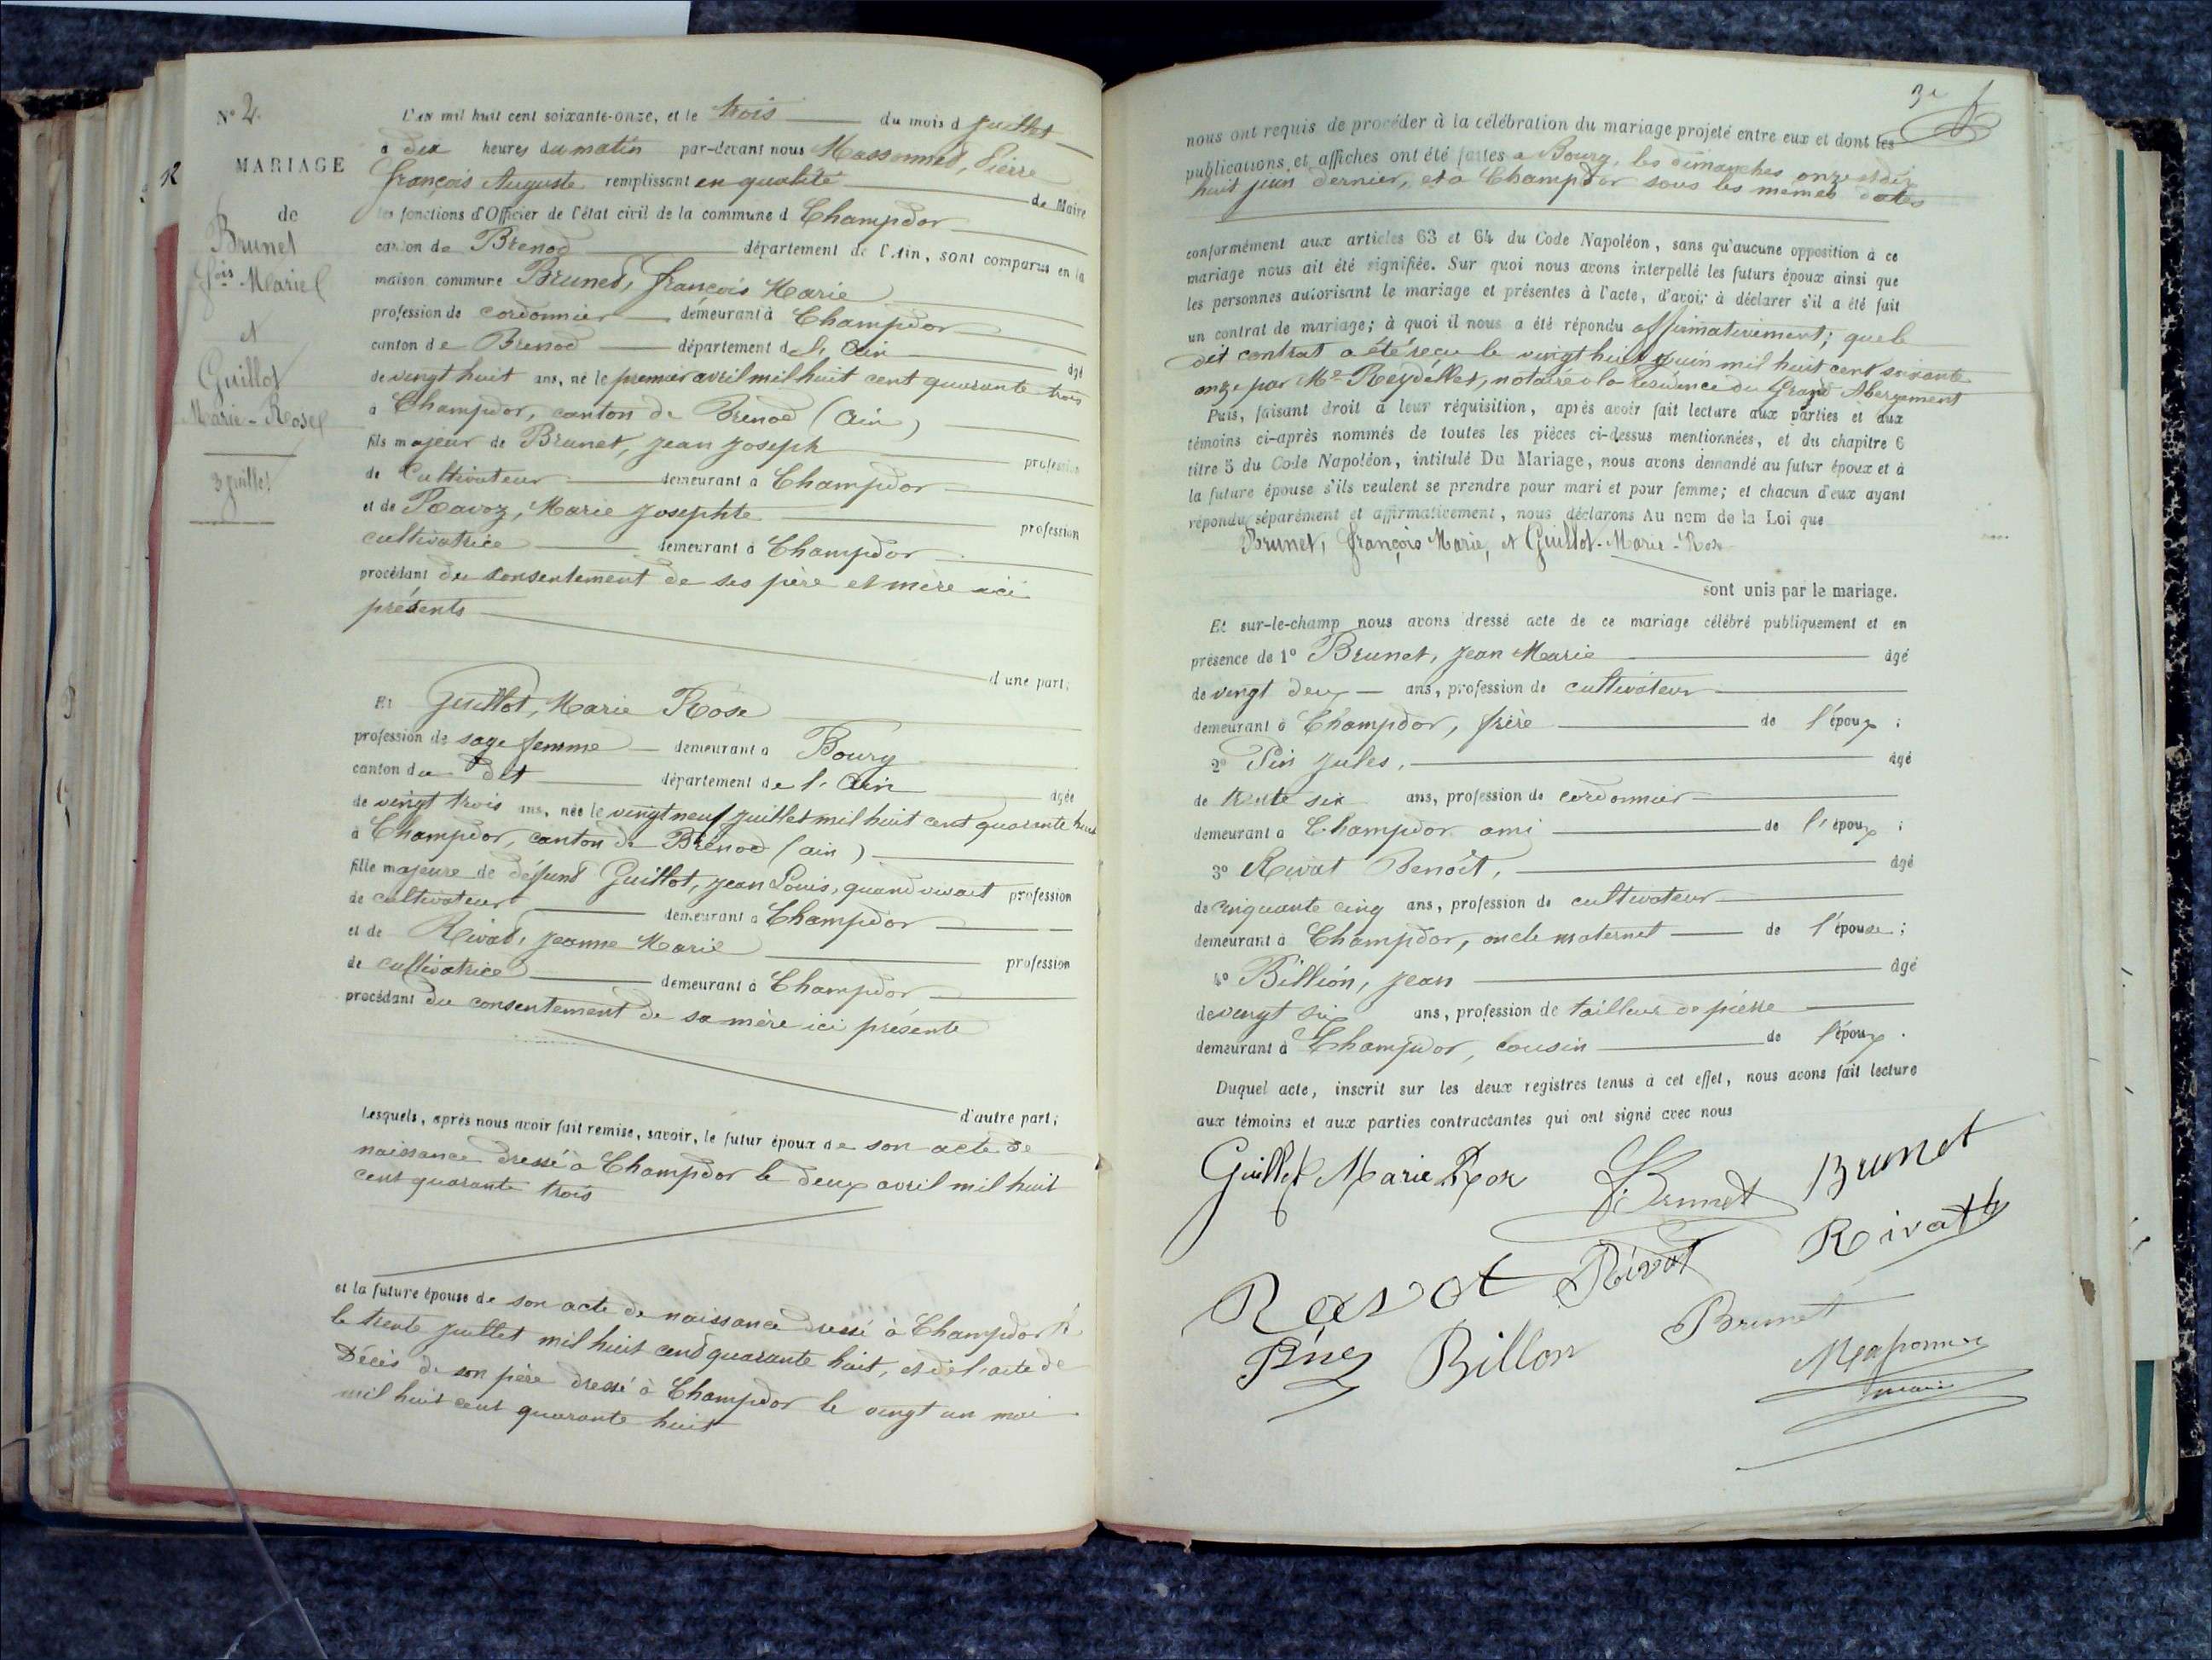 N° 2
MARIAGE
de
Brunet
fois Marie
et
Guillot
Marie-Rose
3 juillet
L'an mil huit cent soixante-onze, et le trois du mois d juillet
à dix heures du matin par-devant nous Massonnet, Pierre
François Auguste remplissant en qualité de Maire
les fonctions d'Officier de l'état civil de la commune d Champdor
canton de Brenod département de l'Ain, sont comparus en la
maison commune Brunet, François Marie
profession de cordonnier demeurant à Champdor
canton de Brenod département de l'Ain âgé
de vingt huit ans, né le premier avril mil huit cent quarante trois
à Champdor, canton de Brenod (Ain)
fils majeur de Brunet, Jean Joseph profession
de Cultivateur demeurant à Champdor
et de Ravoz, Marie Josephte profession
cultivatrice demeurant à Champdor
procédant du consentement de ses père et mère ici
présents
d'une part;
Et Guillot, Marie Rose
profession de sage femme demeurant à Bourg
canton du dit département de l'Ain âgée
de vingt trois ans, née le vingt neuf juillet mil huit cent quarante huit
à Champdor, canton de Brenod (ain)
fille majeure de défunt Guillot, Jean Louis, quand vivait profession
de cultivateur demeurant à Champdor
et de Rivat, Jeanne Marie profession
de cultivatrice demeurant à Champdor
procédant du consentement de sa mère ici présente
d'autre part;
Lesquels, après nous avoir fait remise, savoir, le futur époux de son acte de
naissance dressé à Champdor le deux avril mil huit
cent quarante trois
et la future épouse de son acte de naissance dressé à Champdor
le trente juillet mil huit cent quarante huit, et de l'acte de
Décès de son père dressé à Champdor le vingt un mai
mil huit cent quarante huit
nous ont requis de procéder à la célébration du mariage projeté entre eux et dont les
publications et affiches ont été faites à Bourg, les dimanches onze et dix
huit juin dernier, et à Champdor sous les mêmes dates
conformément aux articles 63 et 64 du Code Napoléon, sans qu'aucune opposition à ce
mariage nous ait été signifiée. Sur quoi nous avons interpellé les futurs époux ainsi que
les personnes autorisant le mariage et présentes à l'acte, d'avoir à déclarer s'il a été fait
un contrat de mariage; à quoi il nous a été répondu affirmativement; que le
dit contrat a été reçu le vingt huit juin mil huit cent soixante
onze par Me Reydellet, notaire à la résidence du Grand Abergement
Puis, faisant droit à leur réquisition, après avoir fait lecture aux parties et aux
témoins ci-après nommés de toutes les pièces ci-dessus mentionnées, et du chapitre 6
titre 5 du Code Napoléon, intitulé Du Mariage, nous avons demandé au futur époux et à
la future épouse s'ils veulent se prendre pour mari et pour femme; et chacun d'eux ayant
répondu séparément et affirmativement, nous déclarons Au nom de la Loi que
Brunet, François Marie, et Guillot Marie-Rose
sont unis par le mariage.
Et sur-le-champ nous avons dressé acte de ce mariage célébré publiquement et en
présence de 1° Brunet, Jean Marie âgé
de vingt deux ans, profession de cultivateur
demeurant à Champdor, frère de l'époux;
2° Pin Jules, âgé
de trente six ans, profession de cordonnier
demeurant à Champdor ami de l'époux;
3° Rivat Benoît, âgé
de cinquante cinq ans, profession de cultivateur
demeurant à Champdor, oncle maternel de l'épouse;
4° Billion, Jean âgé
de vingt six ans, profession de tailleur de pierre
demeurant à Champdor, cousin de l'époux.
Duquel acte, inscrit sur les deux registres tenus à cet effet, nous avons fait lecture
aux témoins et aux parties contractantes qui ont signé avec nous
Guillot Marie Roze Brunet Brunet
Ravot Rivat Rivat
Billon Brunet
Massonnet
maire